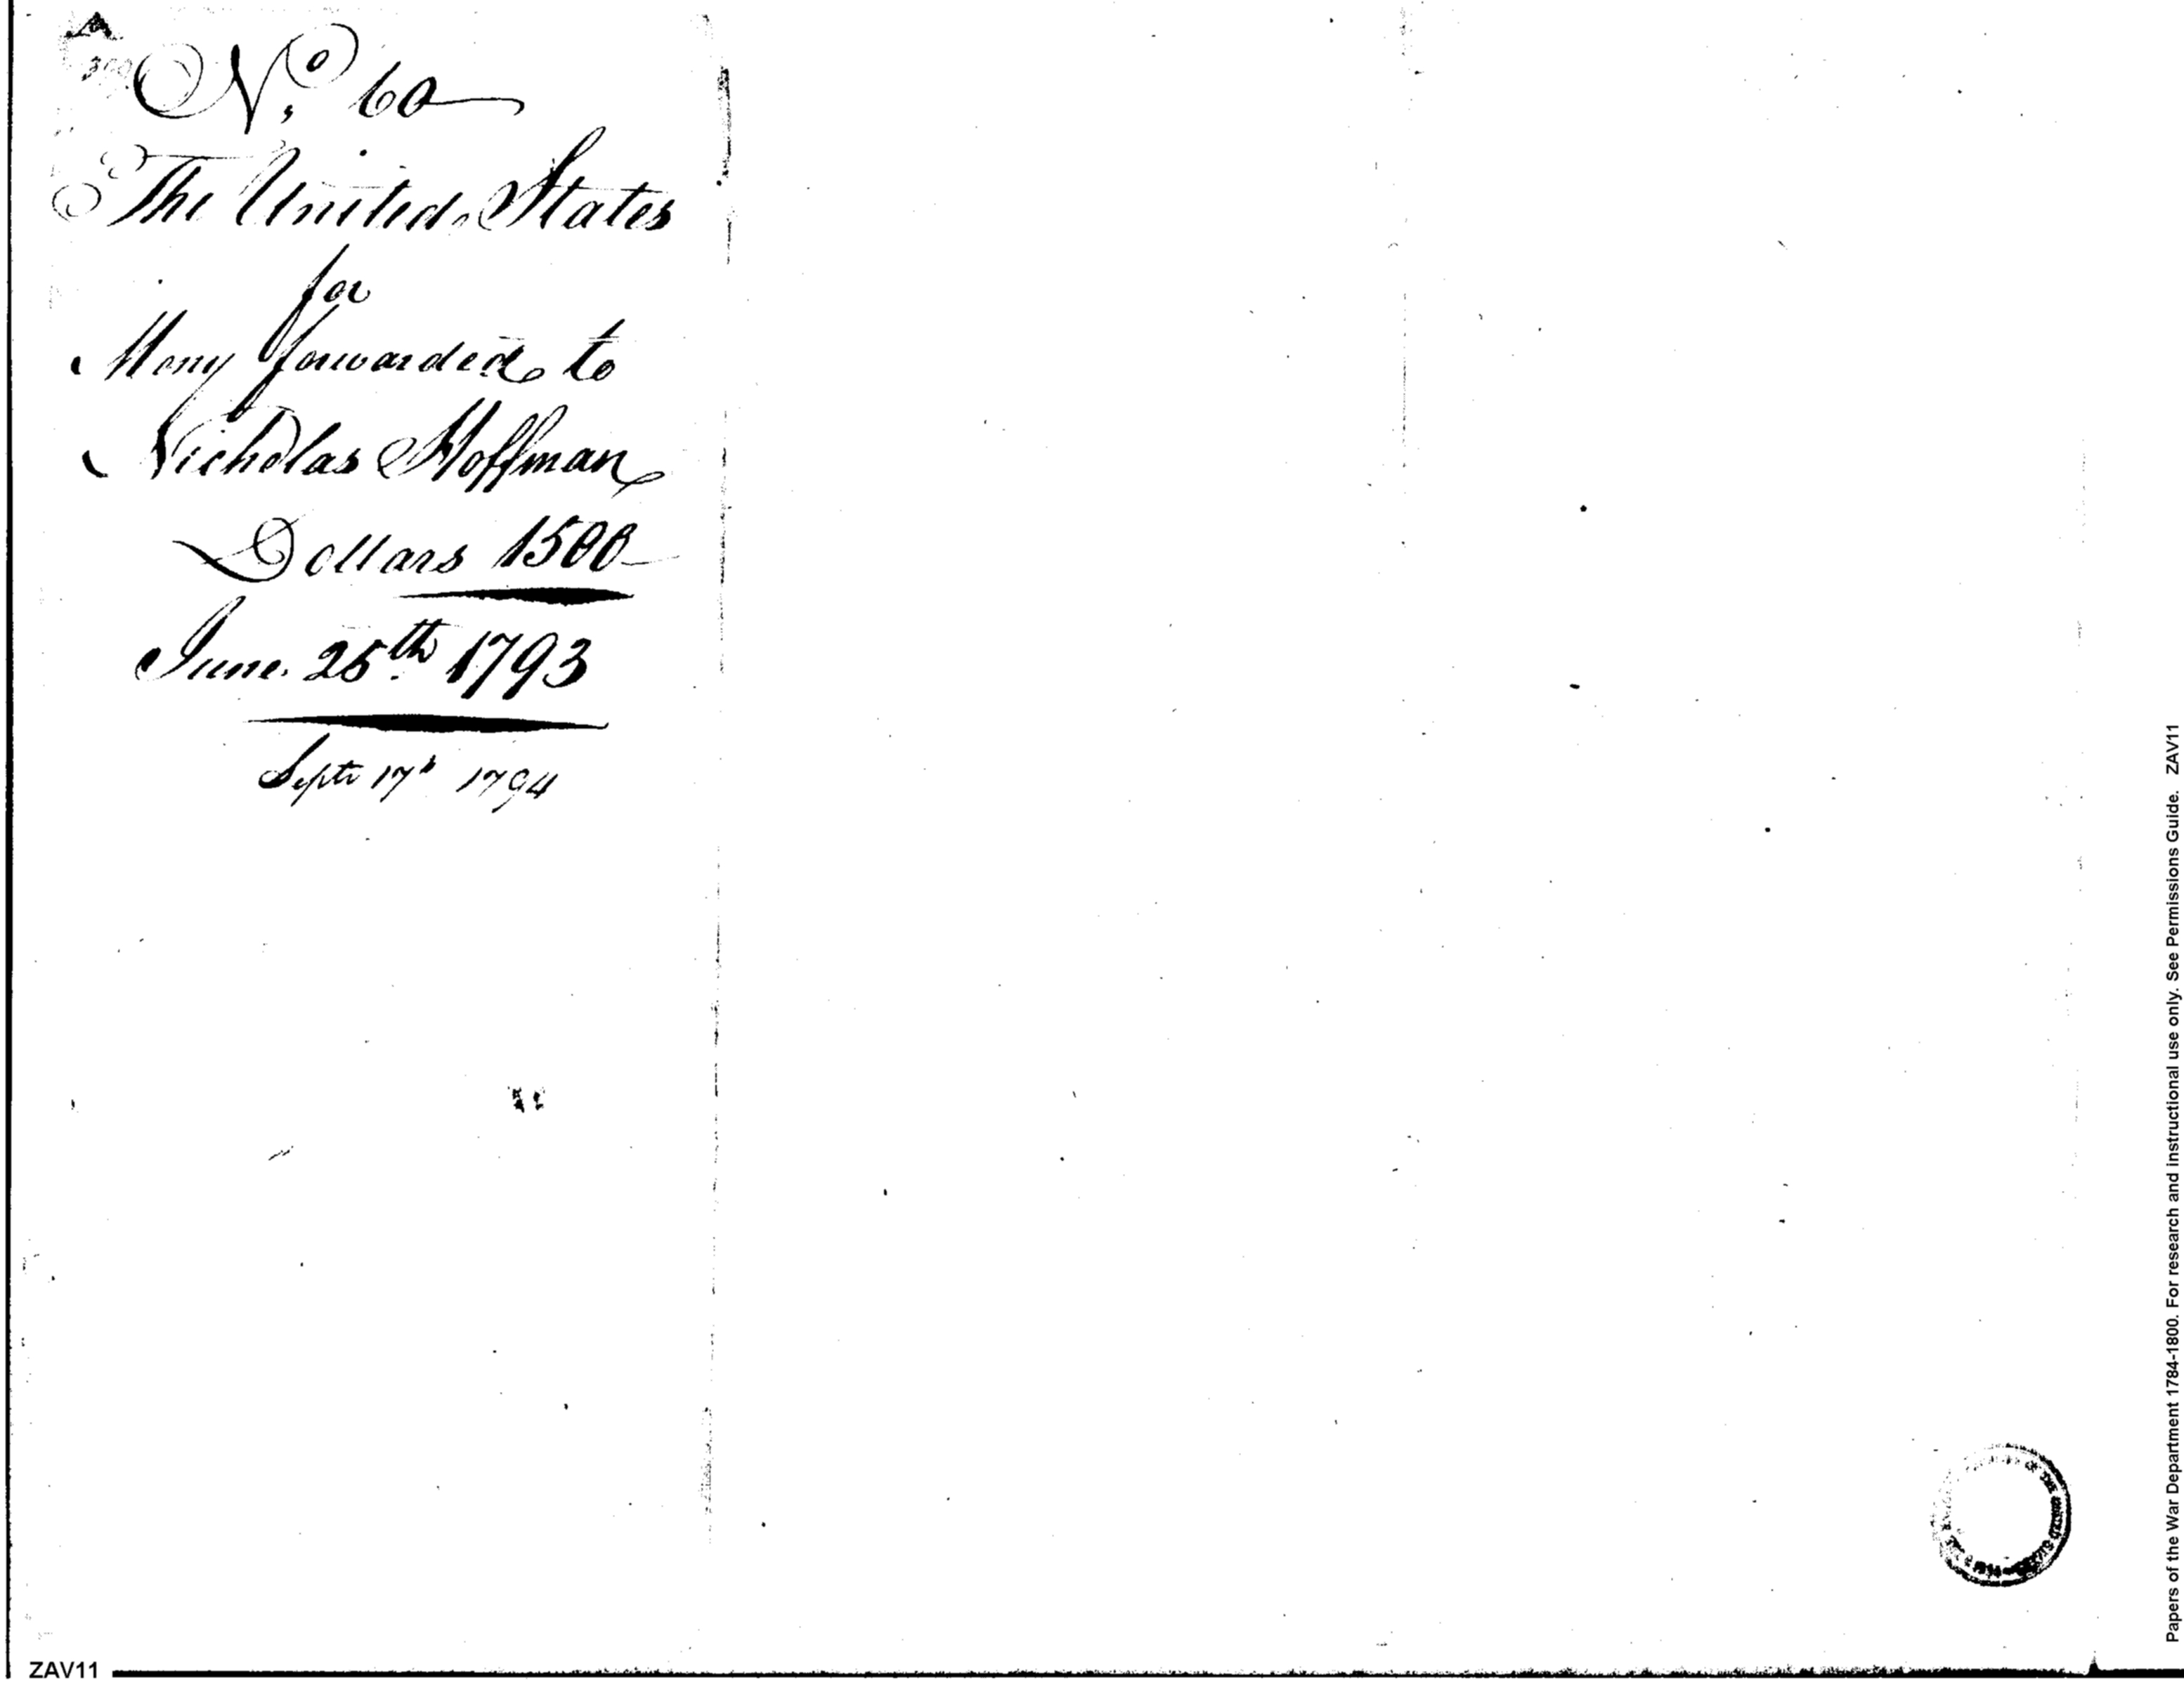 No. 60
The United States
for
Mony forwarded to
Nicholas Hoffman
Dollars 1500
June 25th 1793
Septr 17th 1794
ZAV11
Papers of the War Department 1784-1800. For research and instructional use only. See Permissions Guide. ZAV11